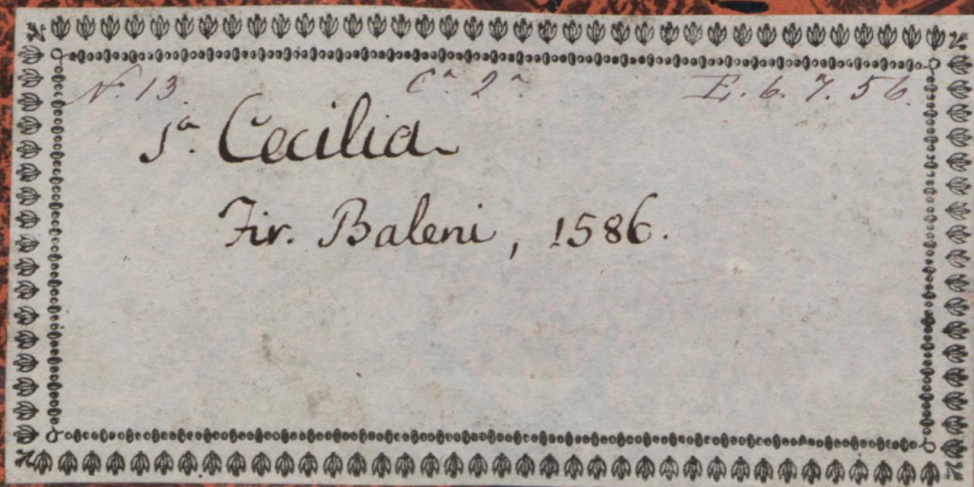 N.° 13. C.ª 2.ª E. 6. 7. 56.
S.ª Cecilia
Fir. Baleni, 1586.